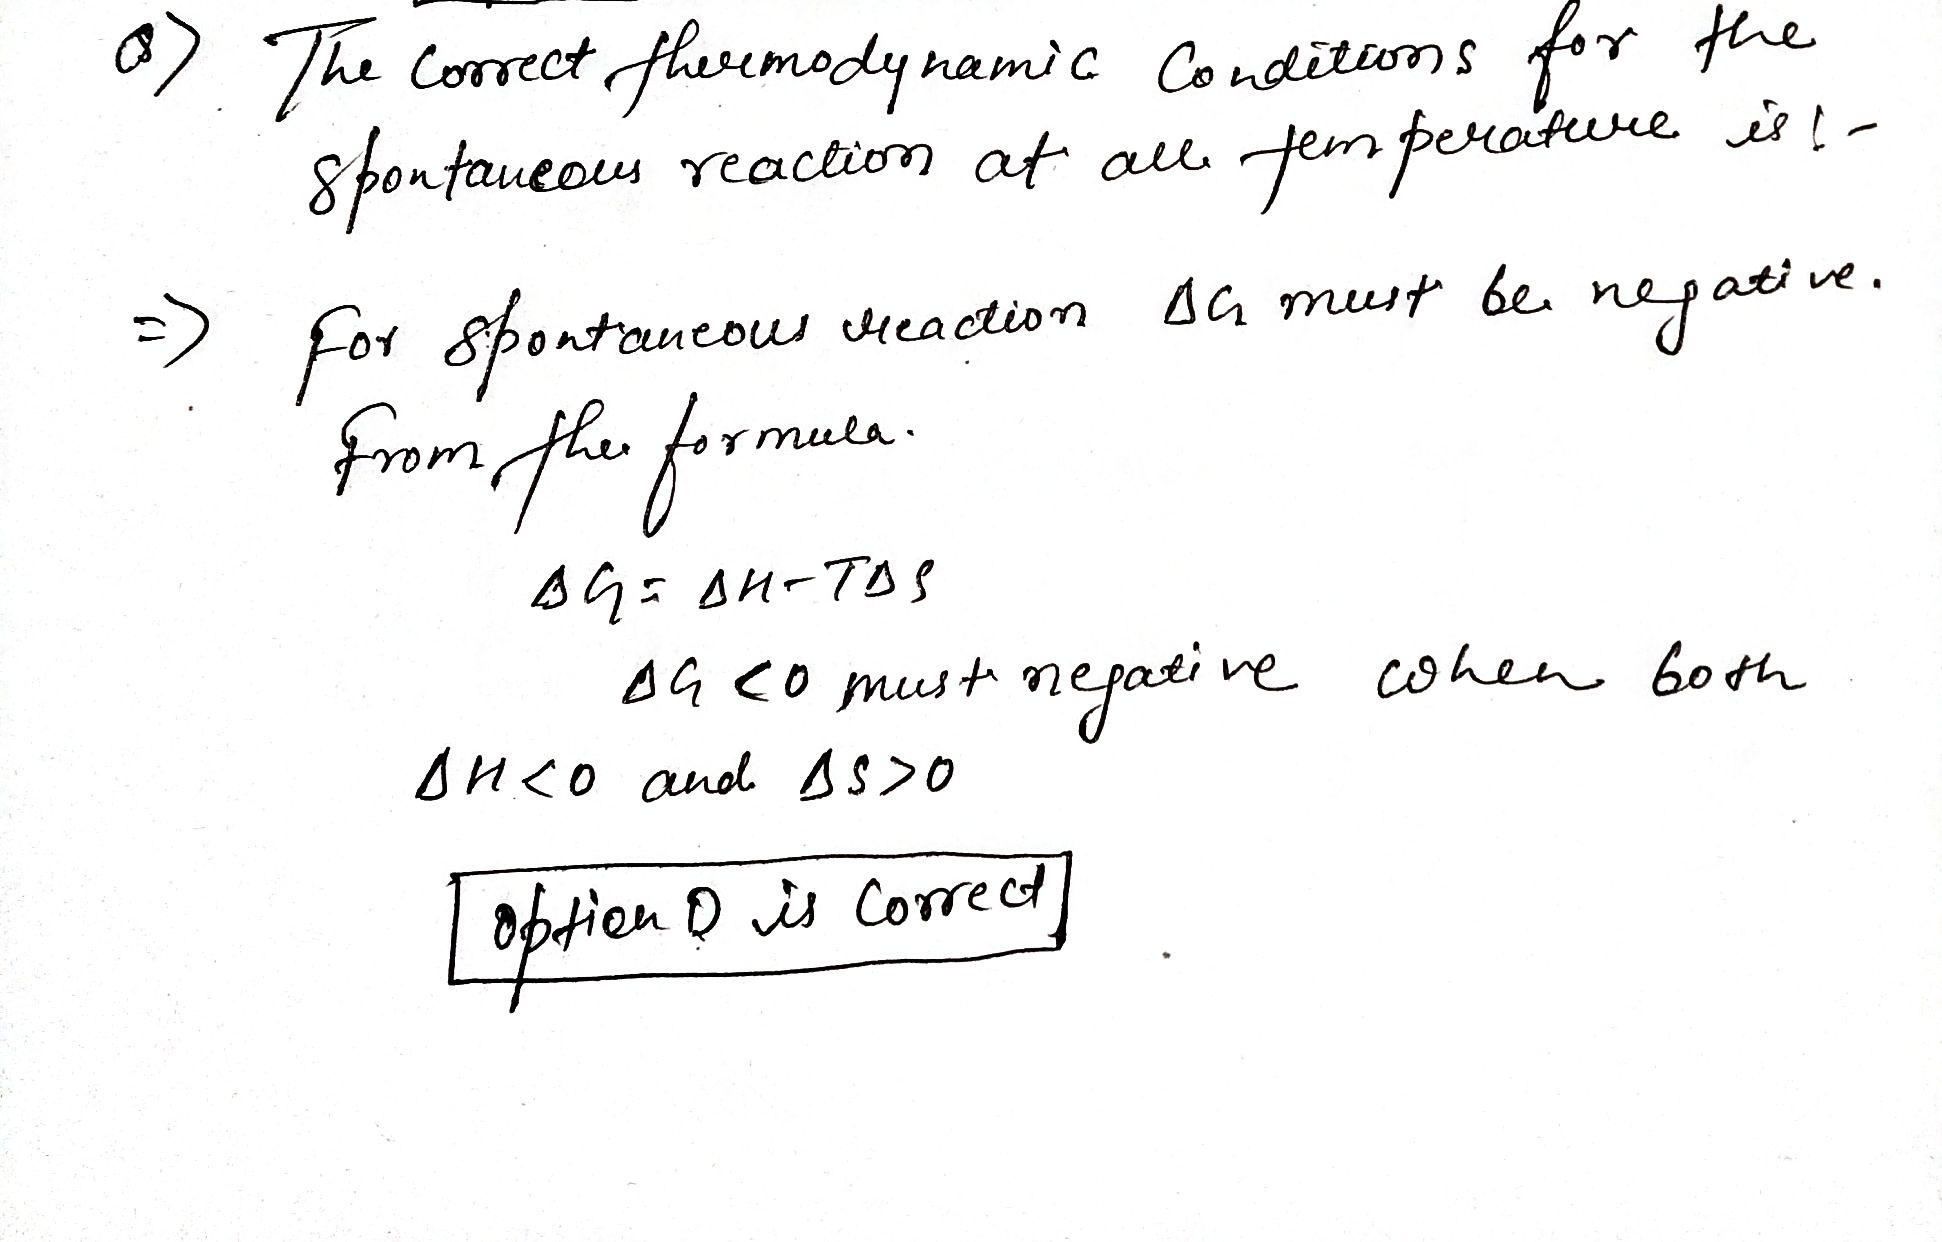 Q) The Correct thermodynamic Conditions for the
spontaneous reaction at all temperature is :-
=> For spontaneous reaction ΔG must be negative.
From the formula.
ΔG = ΔH - TΔS
ΔG <0 must negative when both
ΔH <0 and ΔS >0
Option D is Correct